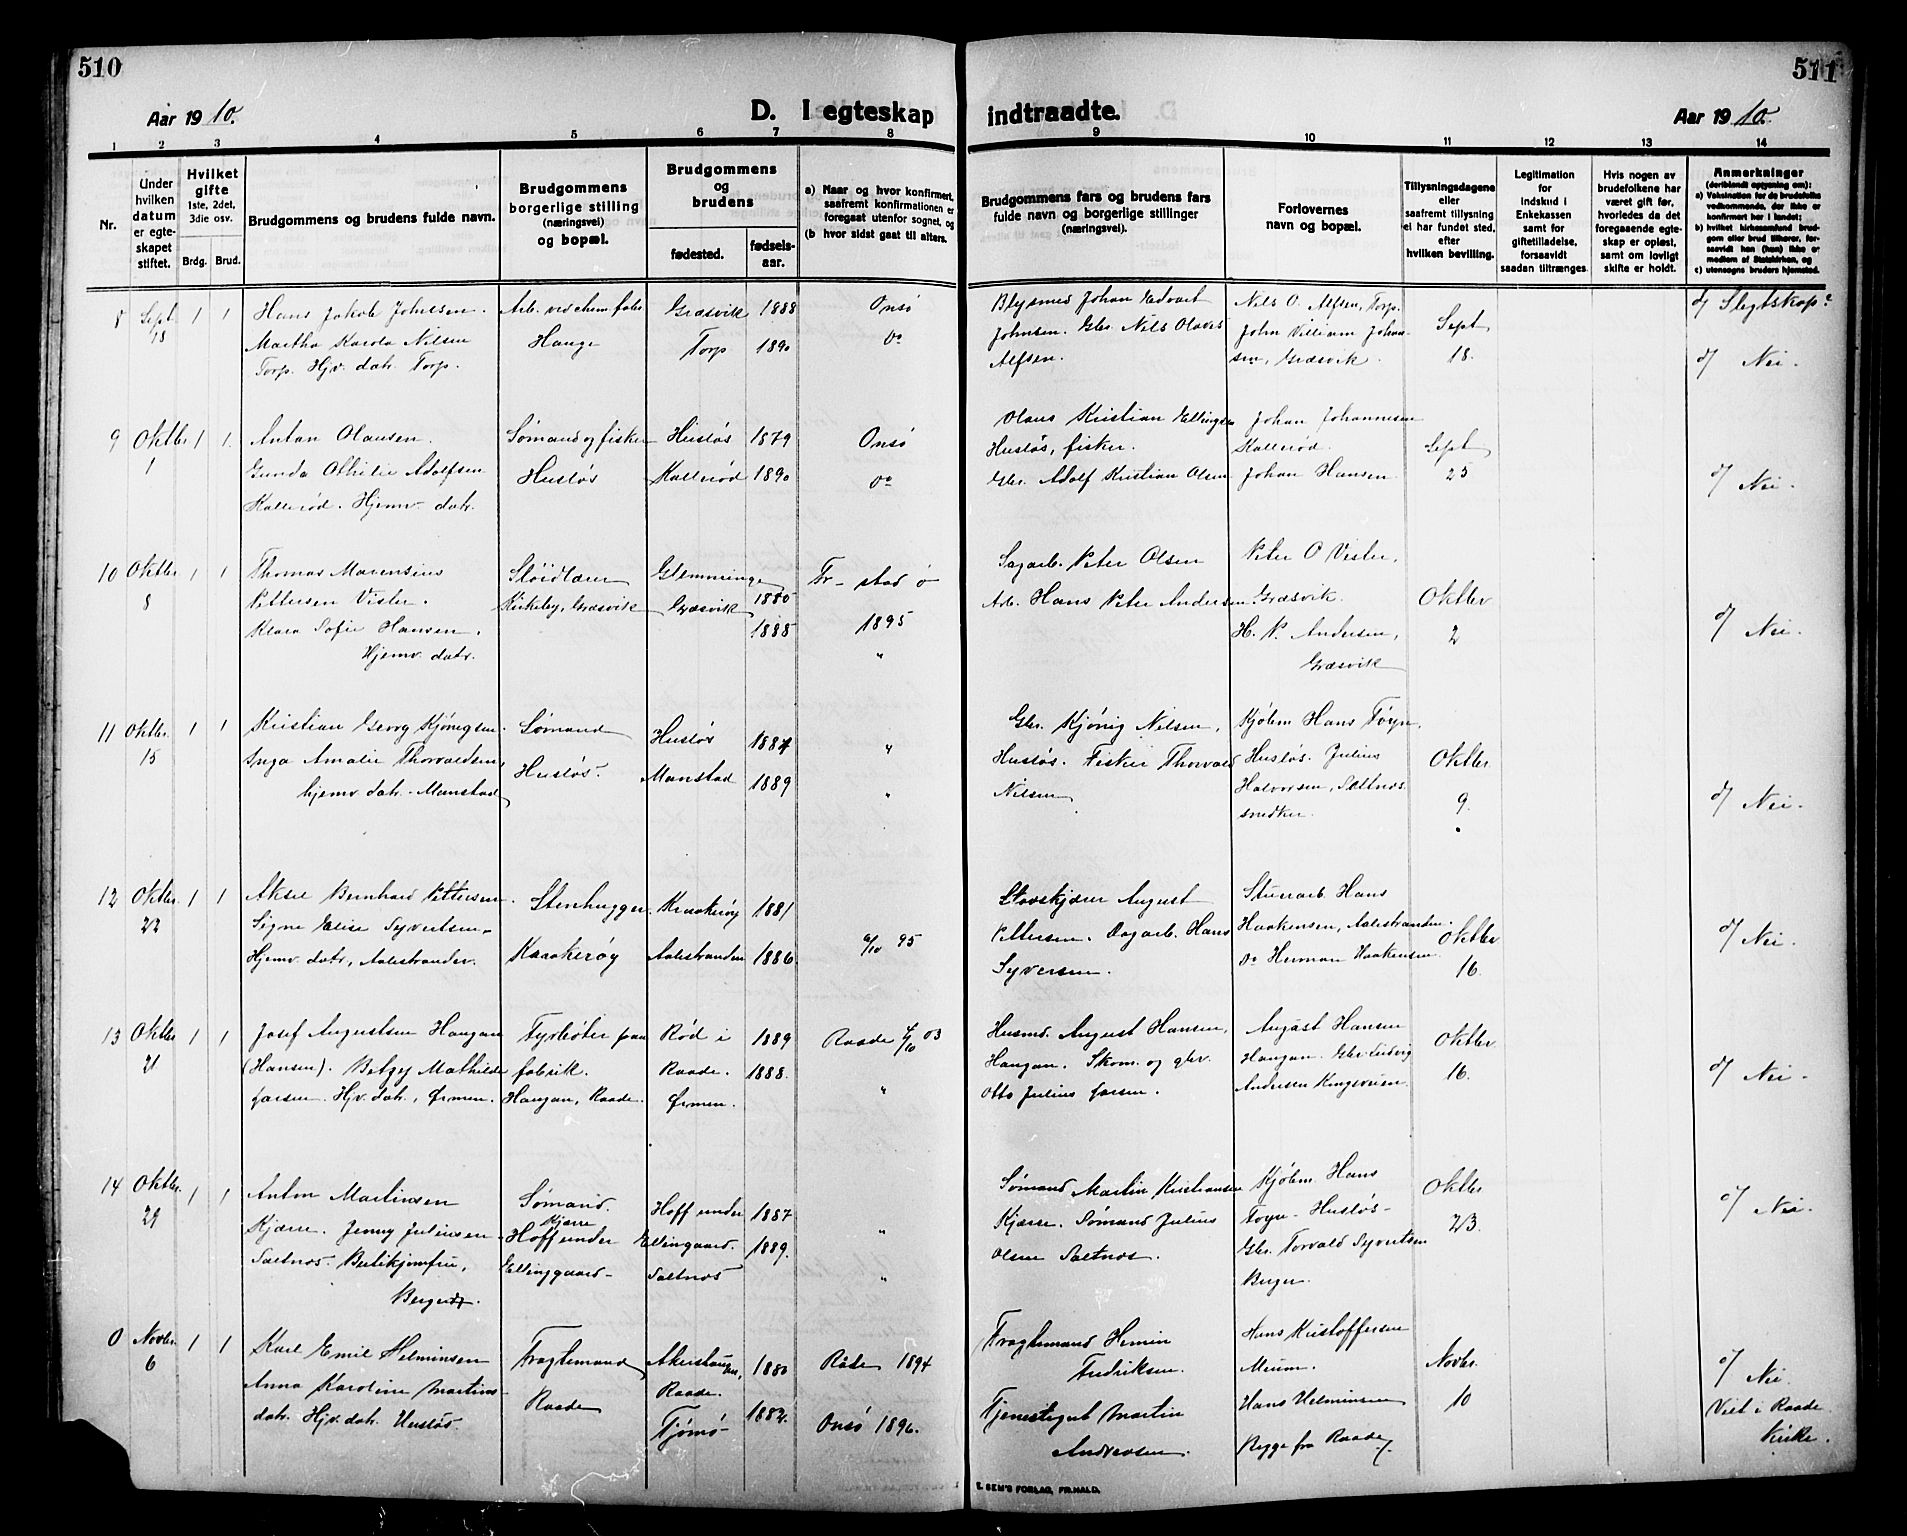 510
Aar 1910.
D. I egteskap
1 2 3 4 5 6 7 8
Nr.
Under hvilken datum er egteskapet stiftet.
Hvilket gifte 1ste, 2det, 3die osv.
Brdg. Brud.
Brudgommens og brudens fulde navn.
Brudgommens borgerlige stilling (næringsvei) og bopæl.
Brudgommens og brudens
fødested. fødsels-aar.
a) Naar og hvor konfirmert, saafremt konfirmationen er foregaat utenfor sognet, og
(b hvor sidst gaat til alters.
8 Sept 18 1 1
Hans Jakob Johnsen.
Martha Karola Nilsen
Torp. Hjv. datr. Torp.
Arb. ved chem. fabr.
Hauge
Græsvik 1888 Onsö
Torp 1890 Do
9 Oktbr 1 1 1.
Anton Olausen.
Gunda Othilie Adolfsen
Kallerød. Hjemv. datr.
Sømand og fisker
Husløs
Husløs 1879 Onsö
Kallerød 1890 Do
10 Oktbr 8 1 1
Thomas Marensius
Pettersen Vister.
Klara Sofie Hansen,
Hjemv. datr.
Sløidlærer
Kirkeby, Græsvik
Glemminge 1880
Græsvik 1888
Fr-stad ö
1895
"
11 Oktbr. 15 1 1
Kristian Georg Kjönigsen.
Inga Amalie Thorvaldsen,
hjemv. datr. Manstad
Sømand
Husløs.
Husløs 1887 "
Manstad 1889 "
12 Oktbr. 22 1 1
Aksel Bernhard Pettersen
Signe Elise Syvertsen.
Hjemv. datr, Aalestranden.
Stenhugger.
Kraakerøy
Kraakerøy 1881
Aalestranden 1886 6/10 95
13 Oktbr 21 1 1
Josef Augustsen Haugan
(Hansen). Betzy Mathilde
Larsen. Hjv. datr, Ørmen.
Fyrbøter paa
fabrik.
Haugan, Raade.
Rød i 1889
Raade. 1888.
Ørmen.
Raade 4/10 03
"
14 Oktbr. 29 1 1
Anton Martinsen
Kjærre. Jenny Juliusen
Saltnes. Butikjomfru,
Berger.
Sømand.
Kjærre
Hoff under
Ellinggaard-
Hoff under 1887 "
Ellingaard. 1889.
Saltnes "
0 Novbr. 6 1 1
Karl Emil Helminsen
Anna Karoline Martins-
datr. Hjv. datr. Husløs.
Fragtemand
Raade
Akershaugen, 1880
Raade.
Tjømö 1882.
Råde 1894
Onsö 1896.
511
indtraadte.
Aar 1910.
9 10 11 12 13 14
Brudgommens fars og brudens fars fulde navn og borgerlige stillinger (næringsvei).
Forlovernes navn og bopæl.
Tillysningsdagene eller saafremt tillysning ei har fundet sted, efter hvilken bevilling.
Legitimation for indskud i Enkekassen samt for giftetilladelse, forsaavidt saadan tiltrænges
Hvis nogen av brudefolkene har været gift før, hvorledes da det foregaaende egteskap er opløst, samt om lovligt skifte er holdt.
Anmerkninger
(deriblandt opgivning om):
a) Vaksination for de brudefolks vedkommende, der ikke er konfirmert her i landet;
b) hvilket kirkesamfund brudgom eller brud tilhører, forsaavidt han (hun) ikke er medlem af Statskirken, og
c) utensogns bruders hjemsted.
Johan Edvart
Johnsen. Gbr. Nils Olaves
Alfsen.
Nils O. Alfsen, Torp.
John Villiam Johan-
sen, Græsvik.
Sept
18.
d/ Slegtskap?
d/ Nei.
Olaus Kristian Ellingsen
Husløs, fisker.
Gbr. Adolf Kristian Olsen
Johan Johannesen
Kallerød.
Johan Hansen.
Sept
25
d/ Nei.
Sagarb. Peter Olsen
Arb. Hans Peter Andersen
Peter O Vister,
Græsvik.
H. P. Andersen,
Græsvik
Oktbr
2
d/ Nei.
Gbr. Kjönig Nilsen,
Husløs. Fisker Thorvald
Nilsen
Kjøbm Hans Foyn,
Husløs. Julius
Halvorsen, Saltnes
snedker.
Oktbr.
9.
d/ Nei.
August
Pettersen. Dagarb. Hans
Syversen.
Stenarb. Hans
Haakensen, Aalestranden.
Do Herman Haakensen
Oktbr
16.
d/ Nei.
Husmd. August Hansen,
Haugan. Skom. og gbr.
Otto Julius Larsen.
August Hansen
Haugan. Gbr. Ludvig
Andersen Kongsveien.
Oktbr.
16.
d/ Nei.
Sømand Martin Kristiansen
Kjærre. Sømand Julius
Olsen Saltnes.
Kjøbm. Hans
Foyn - Husløs-
Gbr. Torvald Syvertsen
Berger.
Oktbr
23.
d/ Nei.
Fragtemand Hemin
Fredriksen.
Tjenestegut Martin
Andreasen.
Hans Kristoffersen
Meum.
Hans Helminsen
Rygge fra Raade
Novbr.
10
d/ Nei.
Viet i Raade
Kirke.
E. SEM'S FORLAG, FR.HALD.